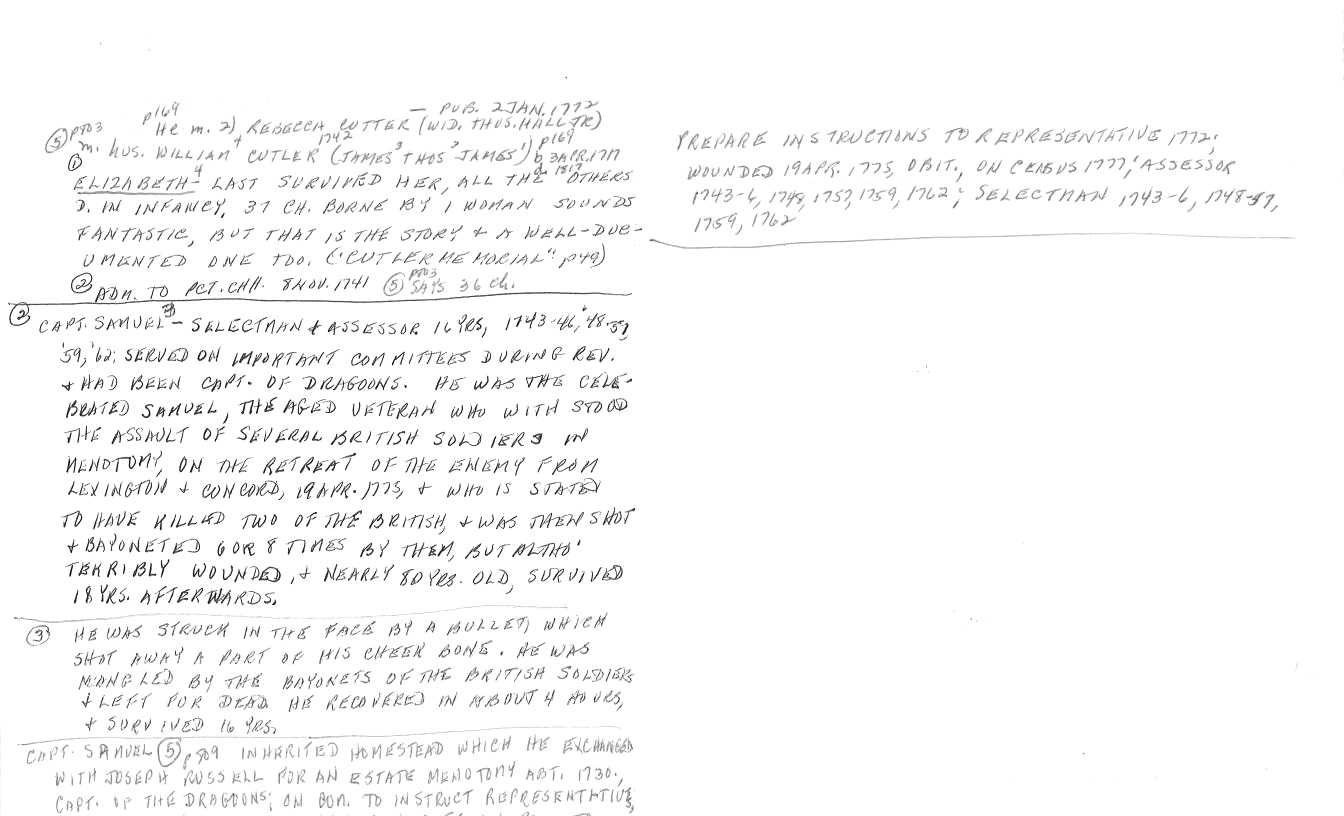 p169
— PUB. 2 JAN. 1772
He m. 2) REBECCA CUTTER (WID. THOS. HALL JR)
⑤ p503 m. hus. WILLIAM⁴ CUTLER (JAMES³ THOS² JAMES¹) b 3 APR. 1717
1742
p169
d. 1817
①
ELIZABETH⁴ - LAST SURVIVED HER, ALL THE OTHERS
D. IN INFANCY, 37 CH. BORNE BY 1 WOMAN SOUNDS
FANTASTIC, BUT THAT IS THE STORY & A WELL-DOC-
UMENTED ONE TOO. ("CUTLER MEMORIAL" p49)
② ADM. TO PCT. CHH. 8 NOV. 1741 ⑤ p503 SAYS 36 Ch.
② CAPT. SAMUEL³ - SELECTMAN & ASSESSOR 16 YRS, 1743-46, '48-57
'59, '62; SERVED ON IMPORTANT COMMITTEES DURING REV.
& HAD BEEN CAPT. OF DRAGOONS. HE WAS THE CELE-
BRATED SAMUEL, THE AGED VETERAN WHO WITH STOOD
THE ASSAULT OF SEVERAL BRITISH SOLDIERS IN
MENOTOMY, ON THE RETREAT OF THE ENEMY FROM
LEXINGTON & CONCORD, 19 APR. 1775, & WHO IS STATED
TO HAVE KILLED TWO OF THE BRITISH, & WAS THEN SHOT
& BAYONETED 6 OR 8 TIMES BY THEM, BUT ALTHO'
TERRIBLY WOUNDED, & NEARLY 80 YRS. OLD, SURVIVED
18 YRS. AFTERWARDS.
③ HE WAS STRUCK IN THE FACE BY A BULLET, WHICH
SHOT AWAY A PART OF HIS CHEEK BONE. HE WAS
MANGLED BY THE BAYONETS OF THE BRITISH SOLDIERS
& LEFT FOR DEAD HE RECOVERED IN ABOUT 4 HOURS,
& SURVIVED 16 YRS.
CAPT. SAMUEL ⑤ p 809 INHERITED HOMESTEAD WHICH HE EXCHANGED
WITH JOSEPH RUSSELL FOR AN ESTATE MENOTOMY ABT. 1730.,
CAPT. OF THE DRAGOONS; ON COM. TO INSTRUCT REPRESENTATIVE,
PREPARE INSTRUCTIONS TO REPRESENTATIVE 1772;
WOUNDED 19 APR. 1775, OBIT., ON CENSUS 1777; ASSESSOR
1743-6, 1748, 1757, 1759, 1762; SELECTMAN 1743-6, 1748-57,
1759, 1762